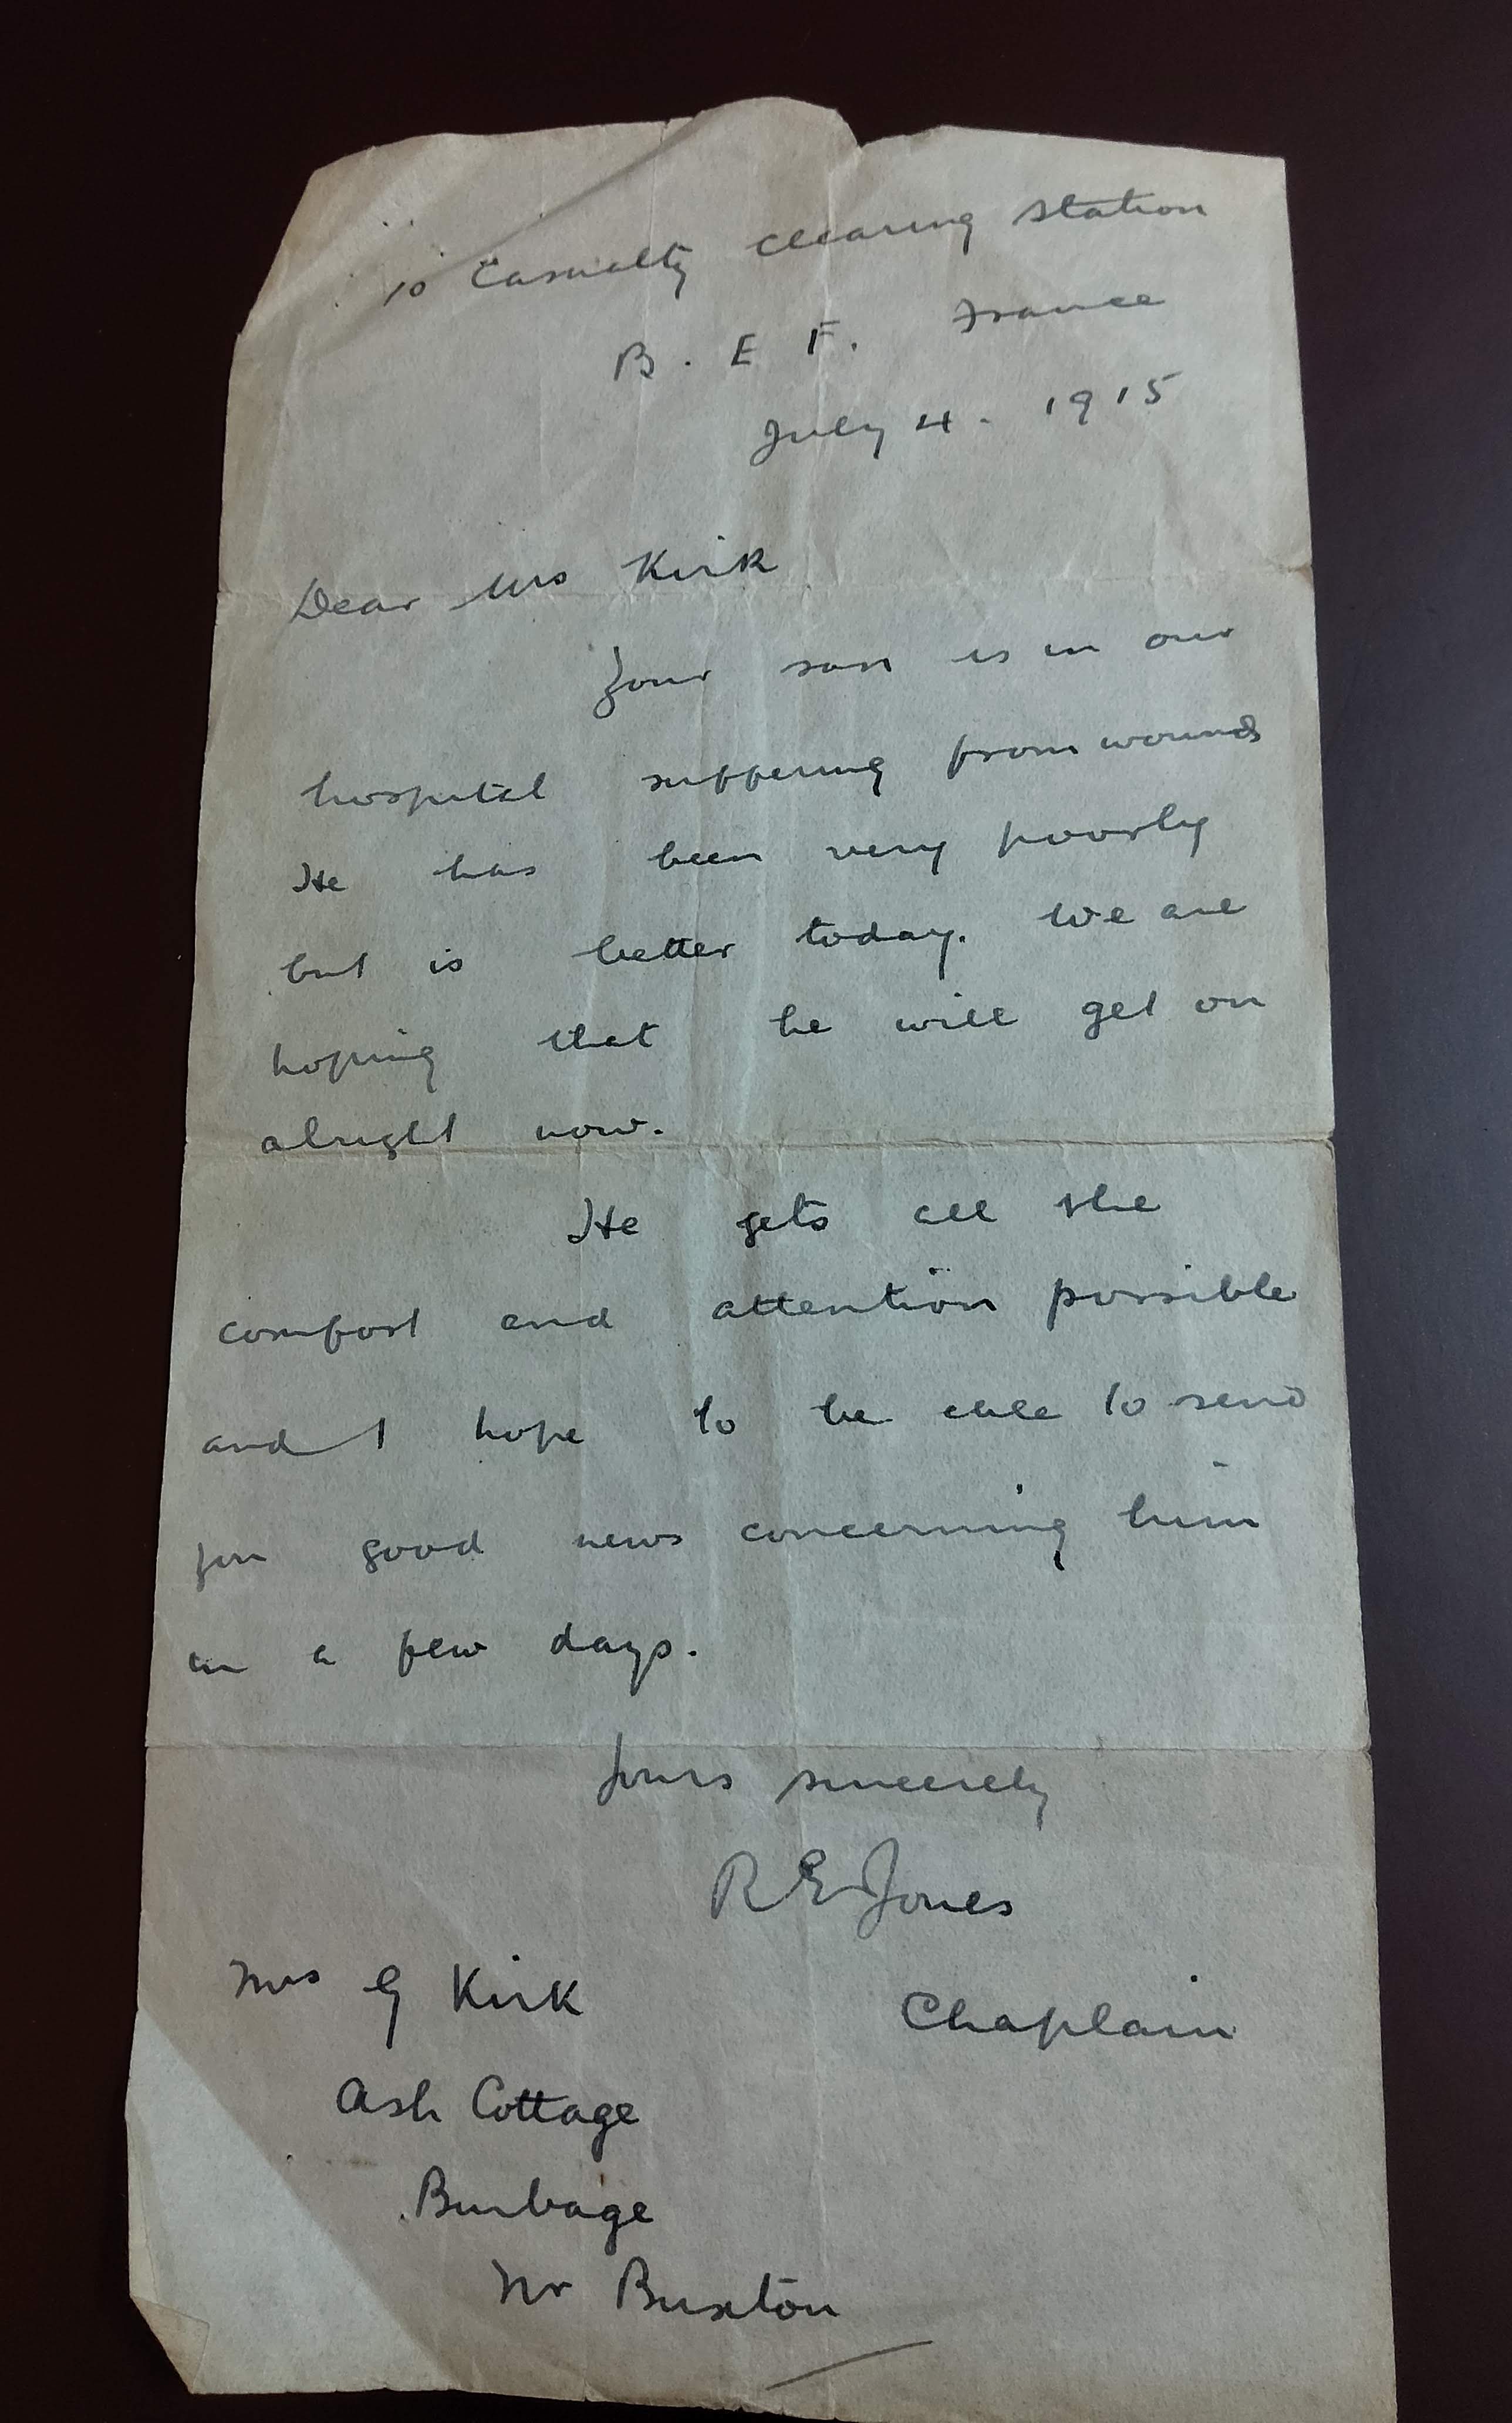 10 Casualty Clearing Station
B. E F. France
July 4. 1915
Dear Mrs Kirk
Your son is in our
hospital suffering from wounds
He has been very poorly
but is better today. We are
hoping that he will get on
alright now.
He gets all the
comfort and attention possible
and I hope to be able to send
you good news concerning him
in a few days.
Yours sincerely
R E Jones
Chaplain
Mrs G Kirk
Ash Cottage
Burbage
Nr Buxton